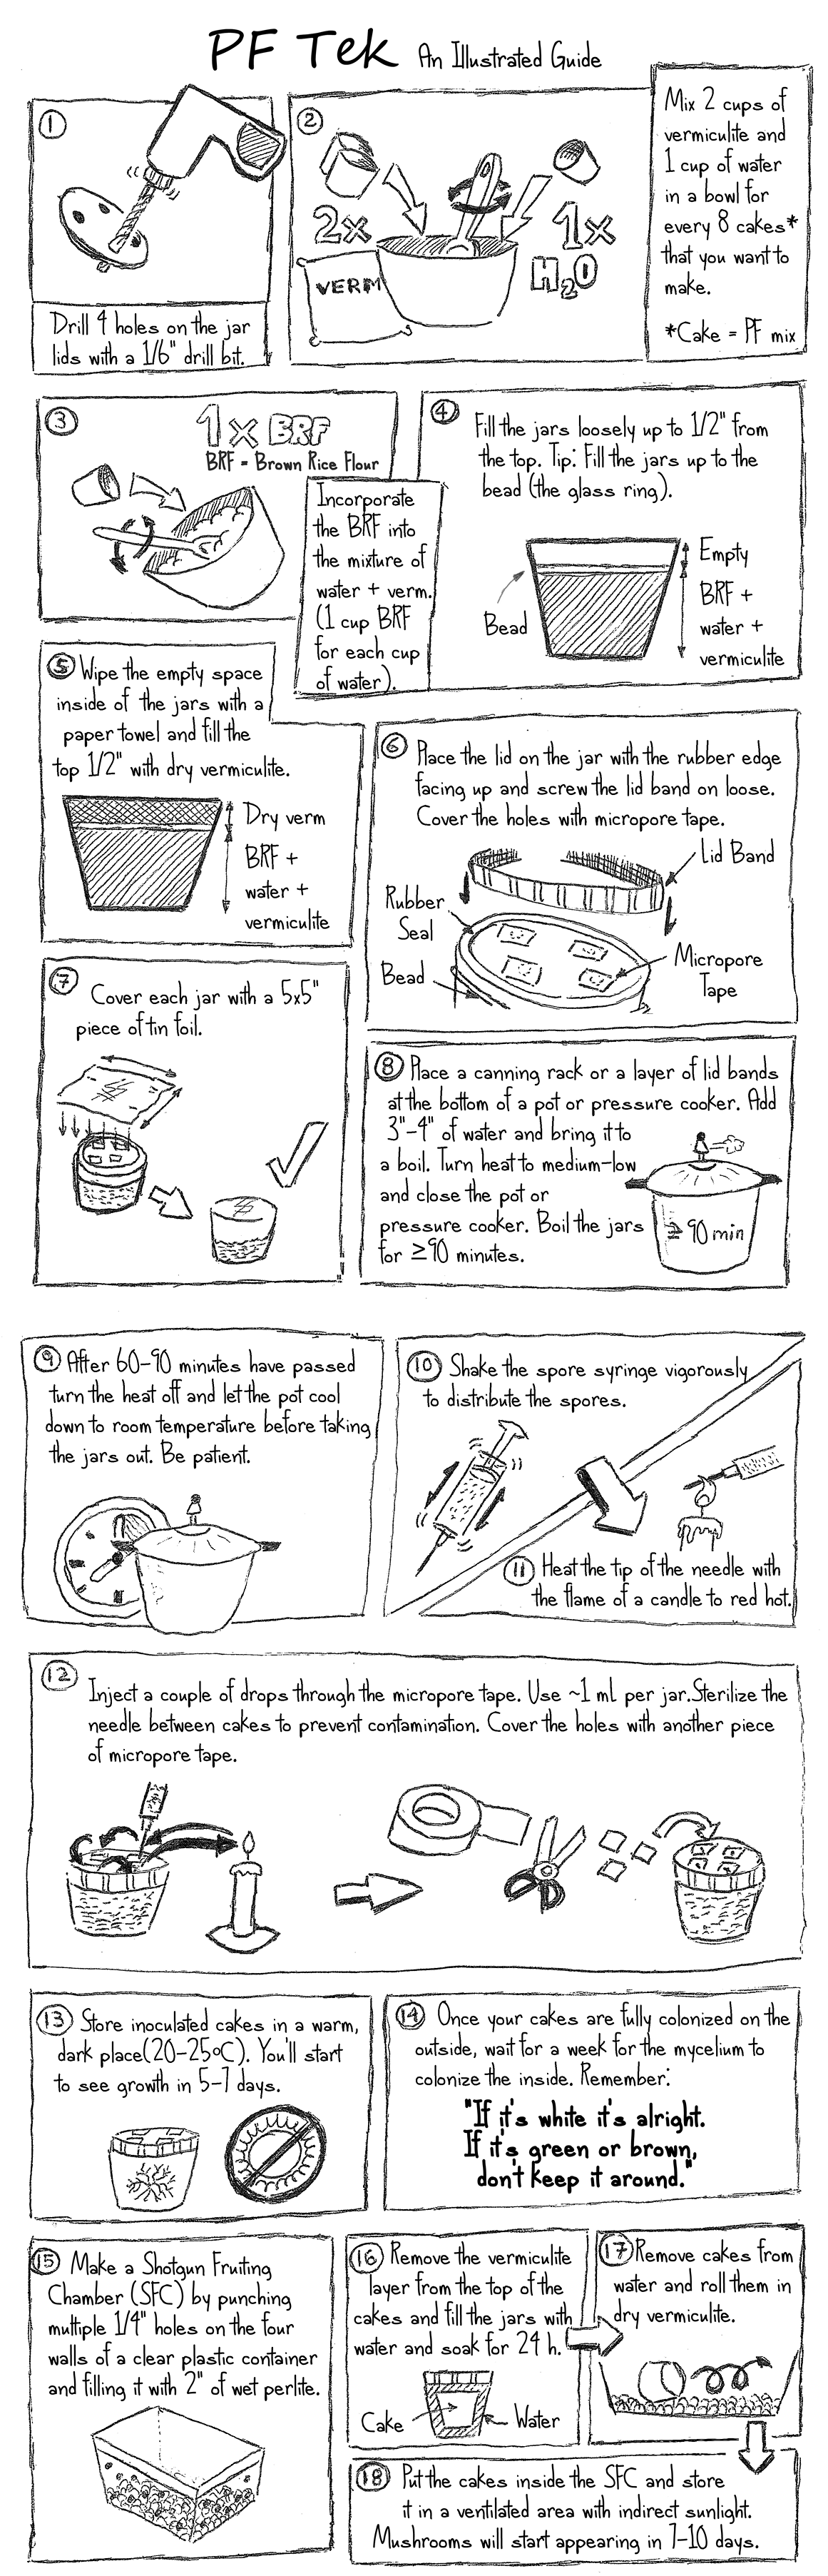 PF Tek An Illustrated Guide
1
Drill 4 holes on the jar
lids with a 1/6" drill bit.
2
2x
VERM
1x
H2O
Mix 2 cups of
vermiculite and
1 cup of water
in a bowl for
every 8 cakes*
that you want to
make.
*Cake = PF mix
3
1x BRF
BRF = Brown Rice Flour
Incorporate
the BRF into
the mixture of
water + verm.
(1 cup BRF
for each cup
of water).
4
Fill the jars loosely up to 1/2" from
the top. Tip: Fill the jars up to the
bead (the glass ring).
Empty
Bead
BRF +
water +
vermiculite
5 Wipe the empty space
inside of the jars with a
paper towel and fill the
top 1/2" with dry vermiculite.
Dry verm
BRF +
water +
vermiculite
6 Place the lid on the jar with the rubber edge
facing up and screw the lid band on loose.
Cover the holes with micropore tape.
Lid Band
Rubber
Seal
Bead
Micropore
Tape
7
Cover each jar with a 5x5"
piece of tin foil.
8 Place a canning rack or a layer of lid bands
at the bottom of a pot or pressure cooker. Add
3"-4" of water and bring it to
a boil. Turn heat to medium-low
and close the pot or
pressure cooker. Boil the jars
for ≥90 minutes.
≥90 min
9 After 60-90 minutes have passed
turn the heat off and let the pot cool
down to room temperature before taking
the jars out. Be patient.
10 Shake the spore syringe vigorously
to distribute the spores.
11 Heat the tip of the needle with
the flame of a candle to red hot.
12
Inject a couple of drops through the micropore tape. Use ~1 mL per jar. Sterilize the
needle between cakes to prevent contamination. Cover the holes with another piece
of micropore tape.
13 Store inoculated cakes in a warm,
dark place(20-25ºC). You'll start
to see growth in 5-7 days.
14 Once your cakes are fully colonized on the
outside, wait for a week for the mycelium to
colonize the inside. Remember:
"If it's white it's alright.
If it's green or brown,
don't keep it around."
15 Make a Shotgun Fruiting
Chamber (SFC) by punching
multiple 1/4" holes on the four
walls of a clear plastic container
and filling it with 2" of wet perlite.
16 Remove the vermiculite
layer from the top of the
cakes and fill the jars with
water and soak for 24 h.
Cake
Water
17 Remove cakes from
water and roll them in
dry vermiculite.
18 Put the cakes inside the SFC and store
it in a ventilated area with indirect sunlight.
Mushrooms will start appearing in 7-10 days.